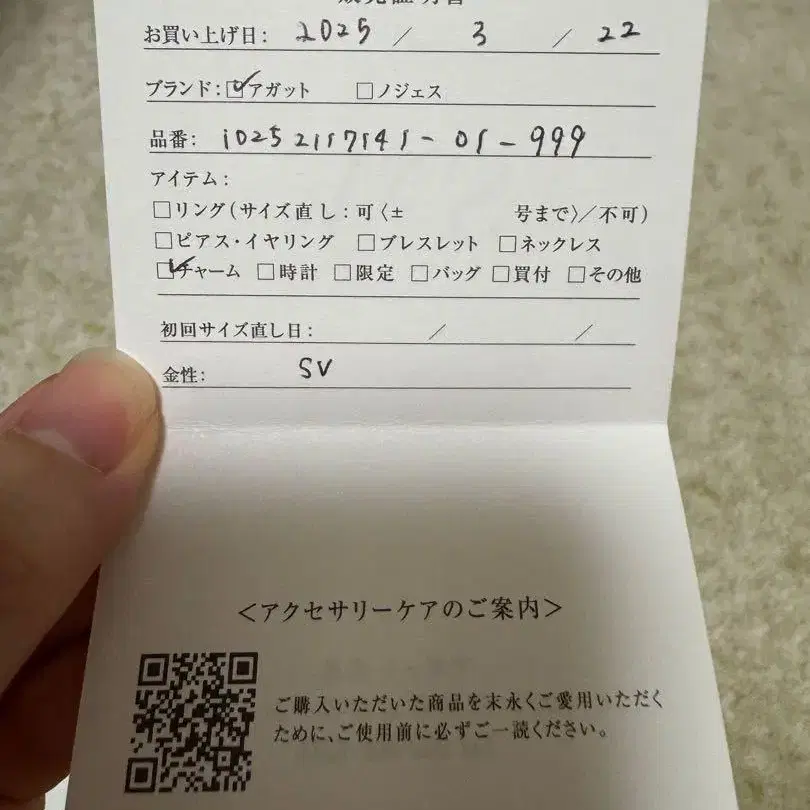 販売証明書
お買い上げ日: 2025 / 3 / 22
ブランド: ☑アガット □ノジェス
品番: 10252117141-01-999
アイテム:
□リング(サイズ直し:可〈± 号まで〉/不可)
□ピアス・イヤリング □ブレスレット □ネックレス
☑チャーム □時計 □限定 □バッグ □買付 □その他
初回サイズ直し日: / /
金性: SV
<アクセサリーケアのご案内>
ご購入いただいた商品を末永くご愛用いただく
ために、ご使用前に必ずご一読ください。